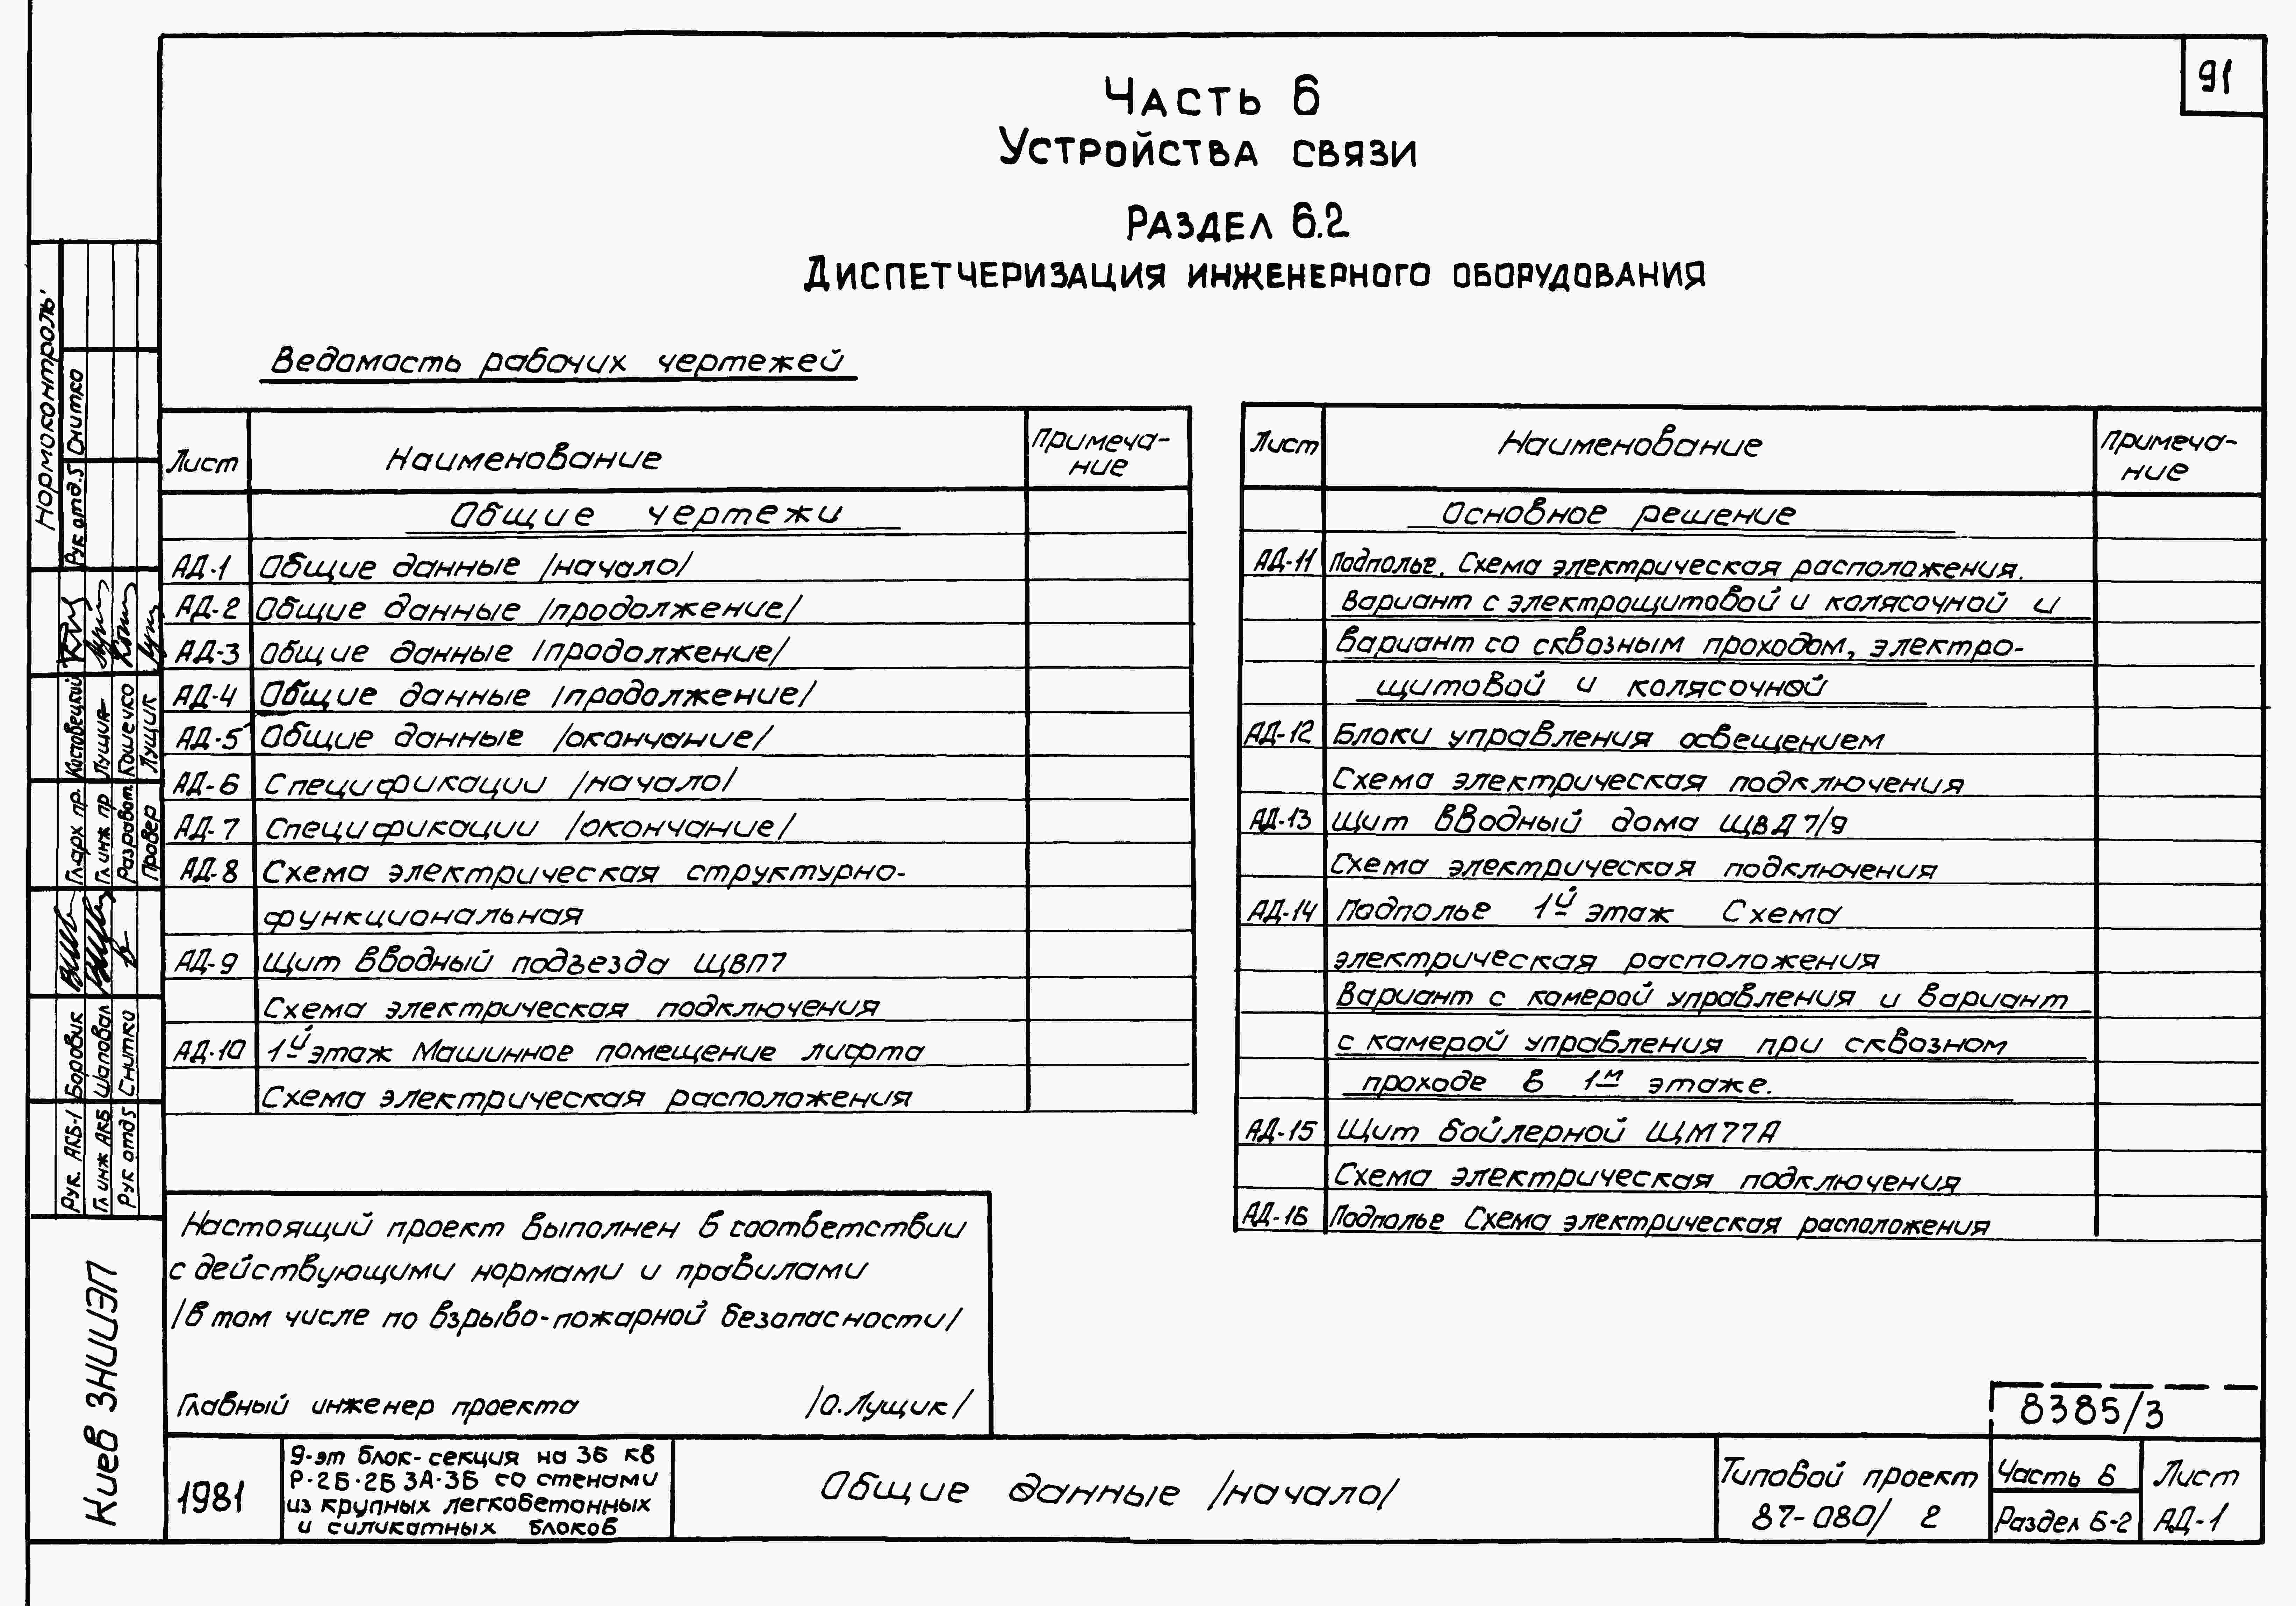 91
Часть 6
Устройства связи
Раздел 6.2
Диспетчеризация инженерного оборудования
Ведамасть рабочих чертежей
Лист Наименование Примеча-
ние
Общие чертежи
АД-1 Общие данные /начало/
АД-2 Общие данные /продолжение/
АД-3 Общие данные /продолжение/
АД-4 Общие данные /продолжение/
АД-5 Общие данные /окончание/
АД-6 Спецификации /начало/
АД-7 Спецификации /окончание/
АД-8 Схема электрическая структурно-
функциональная
АД-9 Щит вводный подъезда ЩВП7
Схема электрическая подключения
АД-10 1й этаж Машинное помещение лифта
Схема электрическая расположения
Лист Наименование Примеча-
ние
Основное решение
АД-11 Подполье. Схема электрическая расположения.
Вариант с электрощитовой и колясочной и
вариант со сквозным проходом, электро-
щитовой и колясочной
АД-12 Блоки управления освещением
Схема электрическая подключения
АД-13 Щит вводный дома ЩВД7/9
Схема электрическая подключения
АД-14 Подполье 1й этаж Схема
электрическая расположения
Вариант с камерой управления и вариант
с камерой управления при сквозном
проходе в 1м этаже.
АД-15 Щит бойлерной ЩМ77А
Схема электрическая подключения
АД-16 Подполье Схема электрическая расположения
Настоящий проект выполнен в соответствии
с действующими нормами и правилами
/в том числе по взрыво-пожарной безопасности/
Главный инженер проекта /О.Лущик/
8385/3
1981
9-эт блок-секция на 36 кв
Р-2Б-2Б 3А-3Б со стенами
из крупных легкобетонных
и силикатных блоков
Общие данные /начало/
Типовой проект
87-080/ 2
Часть 6
Раздел 6-2
Лист
АД-1
Нормоконтроль
Рук отд.5 Снитко
Гл арх пр. Костовецкий
Гл инж пр Лущик
Разработ. Кошечко
Провер Лущик
Рук. АКБ-1 Боровик
Гл инж АКБ Шаповал
Рук отд5 Снитко
Киев ЗНИИЭП